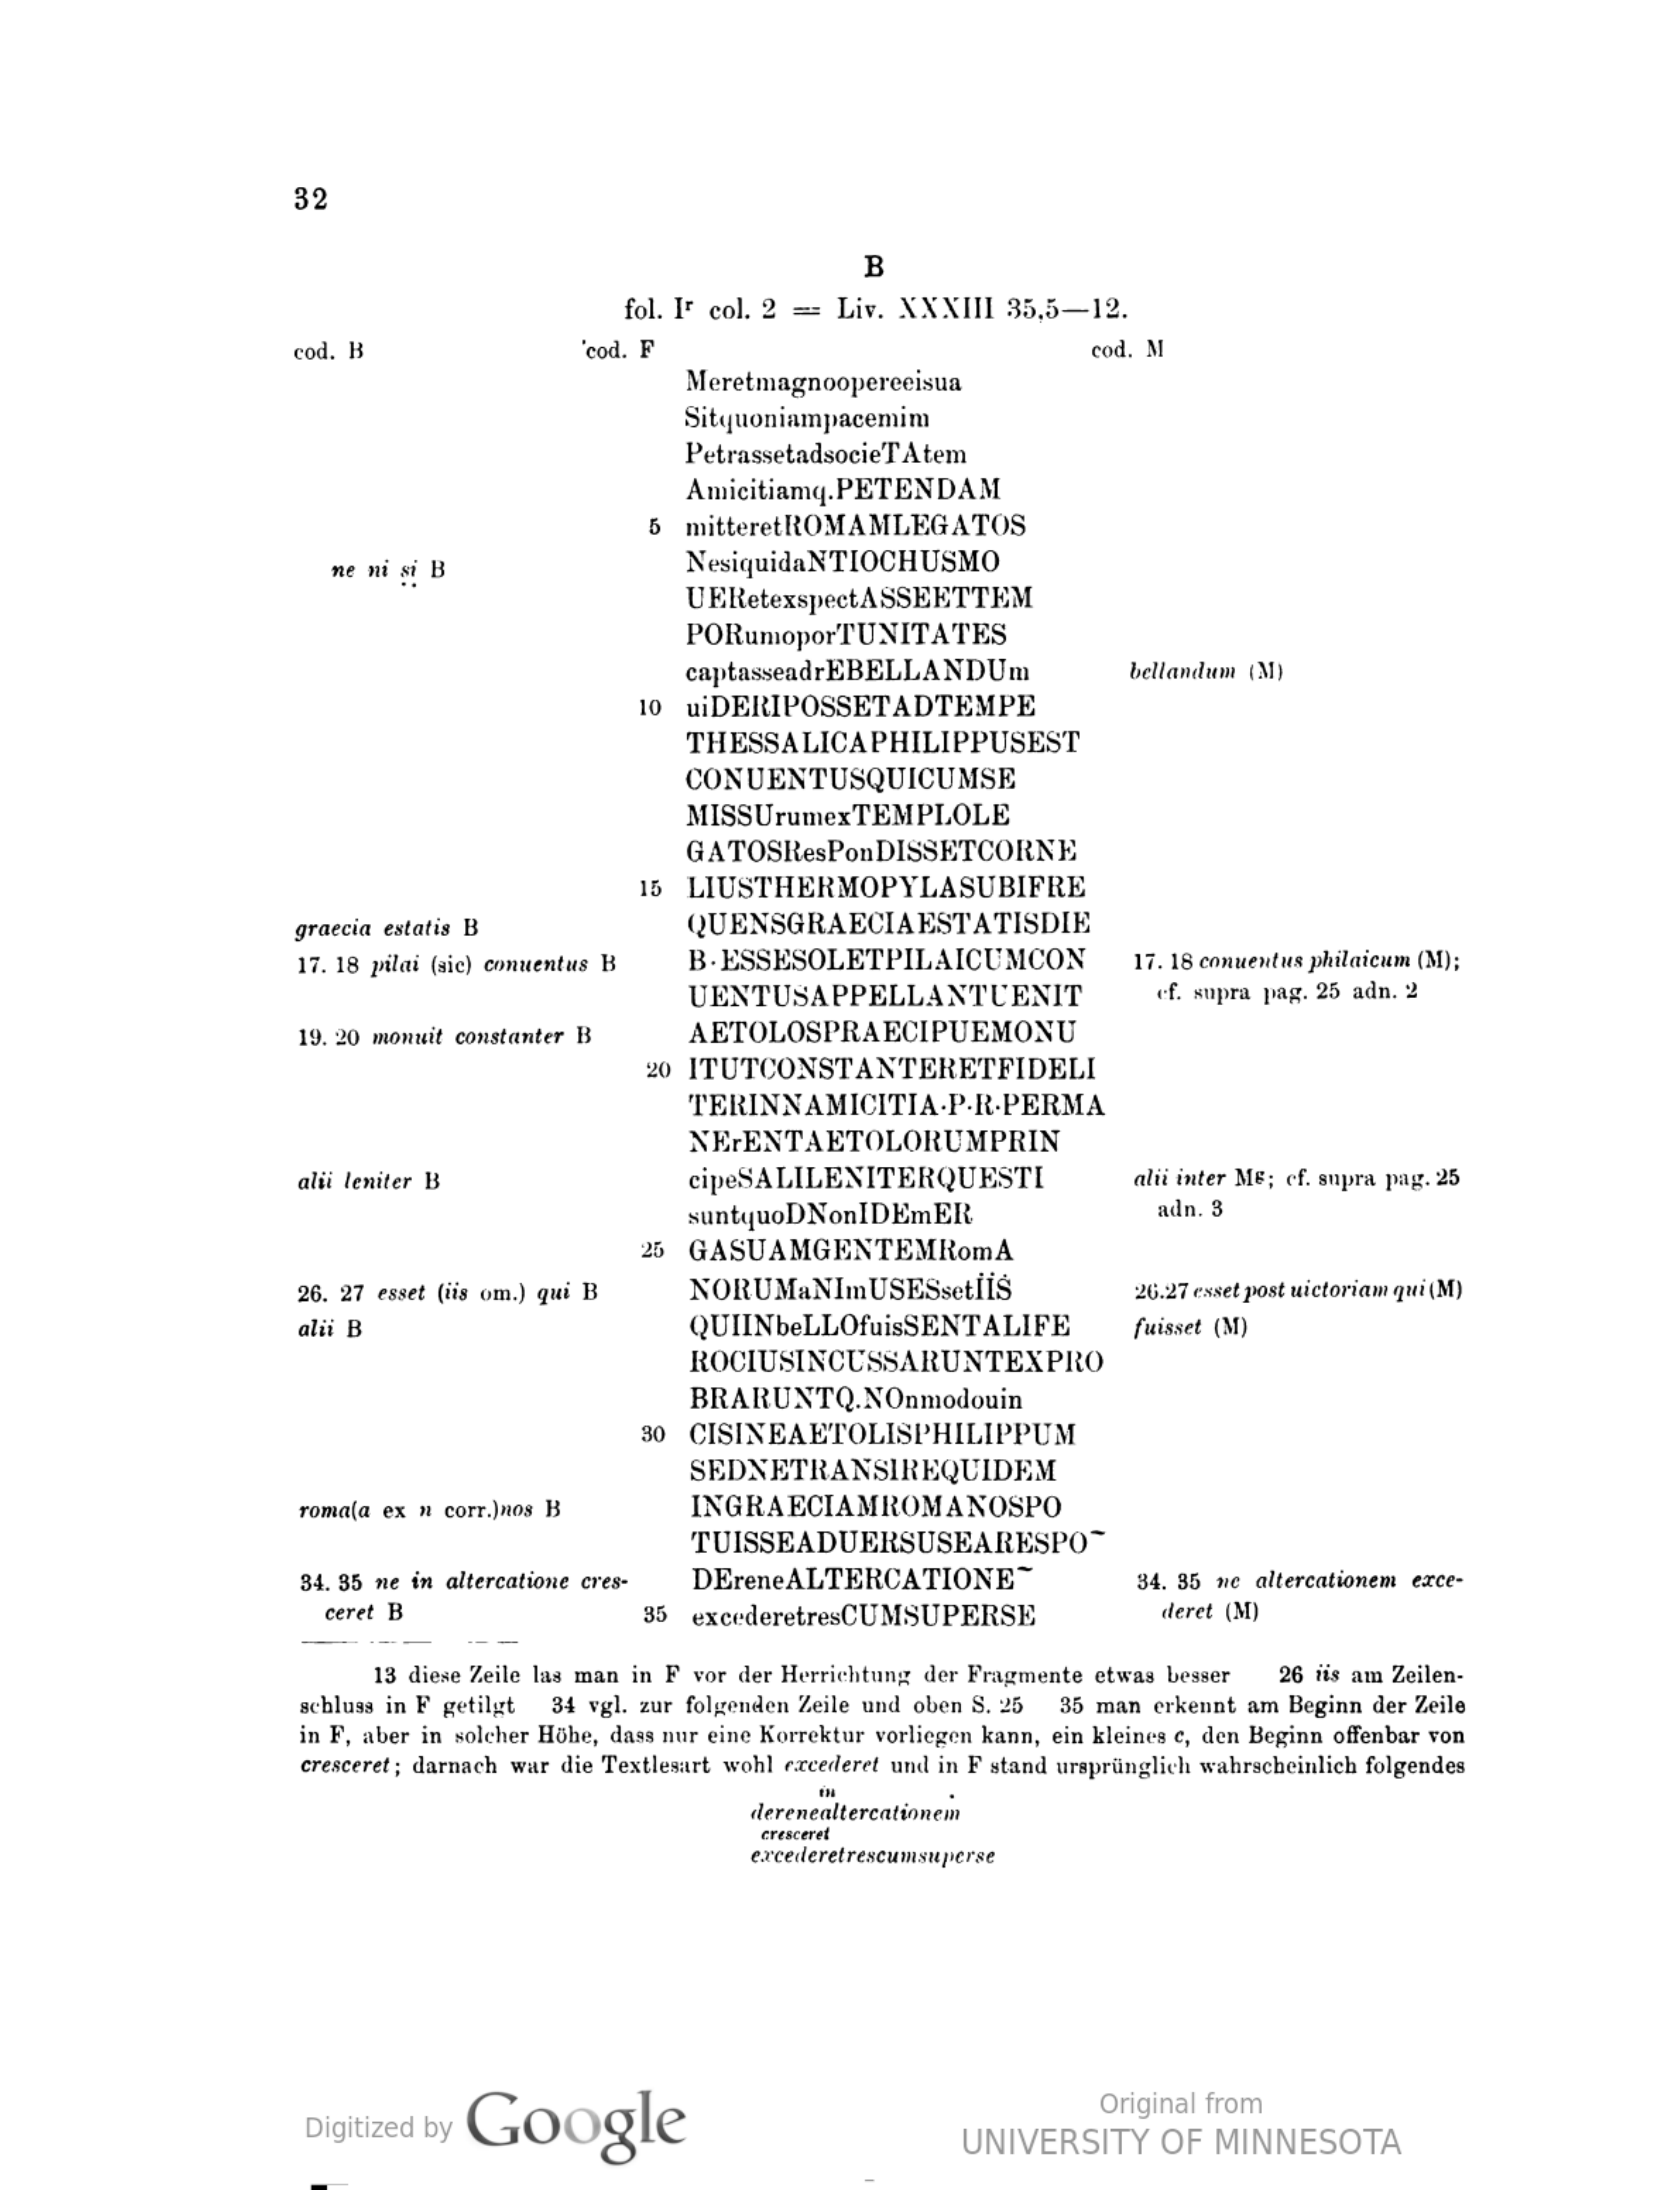 32
B
fol. Iʳ col. 2 = Liv. XXXIII 35,5—12.
cod. B 'cod. F cod. M
Meretmagnoopereeisua
Sitquoniampacemim
PetrassetadsocieTAtem
Amicitiamq.PETENDAM
5 mitteretROMAMLEGATOS
ne ni sị B NesiquidaNTIOCHUSMO
UERetexspectASSEETTEM
PORumoporTUNITATES
captasseadrEBELLANDUm bellandum (M)
10 uiDERIPOSSETADTEMPE
THESSALICAPHILIPPUSEST
CONUENTUSQUICUMSE
MISSUrumexTEMPLOLE
GATOSResPonDISSETCORNE
15 LIUSTHERMOPYLASUBIFRE
graecia estatis B QUENSGRAECIAESTATISDIE
17. 18 pilai (sic) conuentus B B·ESSESOLETPILAICUMCON 17. 18 conuentus philaicum (M);
UENTUSAPPELLANTUENIT cf. supra pag. 25 adn. 2
19. 20 monuit constanter B AETOLOSPRAECIPUEMONU
20 ITUTCONSTANTERETFIDELI
TERINNAMICITIA·P·R·PERMA
NErENTAETOLORUMPRIN
alii leniter B cipeSALILENITERQUESTI alii inter Mᵍ; cf. supra pag. 25
suntquoDNonIDEmER adn. 3
25 GASUAMGENTEMRomA
26. 27 esset (iis om.) qui B NORUMaNImUSESsetİİṠ 26.27 esset post uictoriam qui (M)
alii B QUIINbeLLOfuisSENTALIFE fuisset (M)
ROCIUSINCUSSARUNTEXPRO
BRARUNTQ.NOnmodouin
30 CISINEAETOLISPHILIPPUM
SEDNETRANSIREQUIDEM
roma(a ex n corr.)nos B INGRAECIAMROMANOSPO
TUISSEADUERSUSEARESPO~
34. 35 ne in altercatione cres- DEreneALTERCATIONE~ 34. 35 ne altercationem exce-
ceret B 35 excederetresCUMSUPERSE deret (M)
13 diese Zeile las man in F vor der Herrichtung der Fragmente etwas besser 26 iis am Zeilen-
schluss in F getilgt 34 vgl. zur folgenden Zeile und oben S. 25 35 man erkennt am Beginn der Zeile
in F, aber in solcher Höhe, dass nur eine Korrektur vorliegen kann, ein kleines c, den Beginn offenbar von
cresceret; darnach war die Textlesart wohl excederet und in F stand ursprünglich wahrscheinlich folgendes
in .
derenealtercationem
cresceret
excederetrescumsuperse
Digitized by Google
Original from
UNIVERSITY OF MINNESOTA